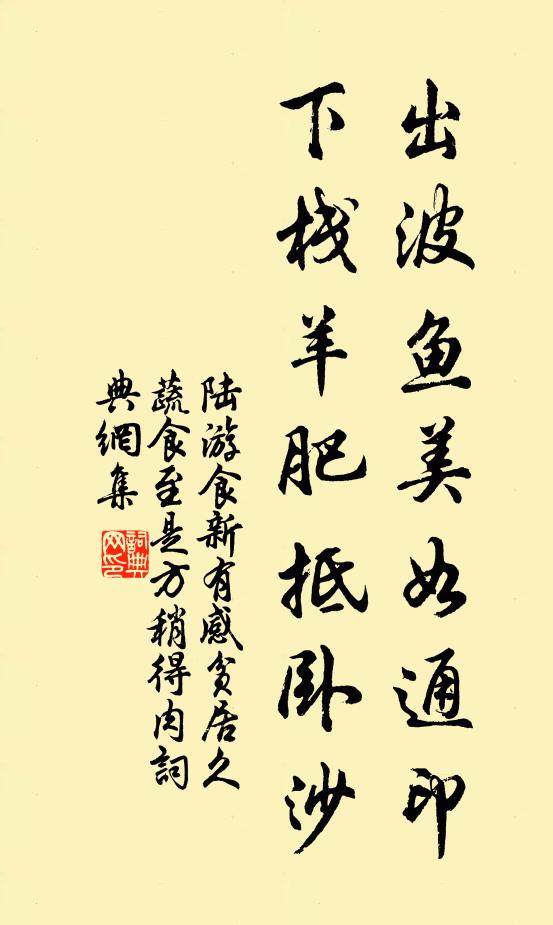 出波鱼美如通印
下栈羊肥抵卧沙
陆游食新有感贫居久
蔬食至是方稍得肉詞
典網集
詞典网印